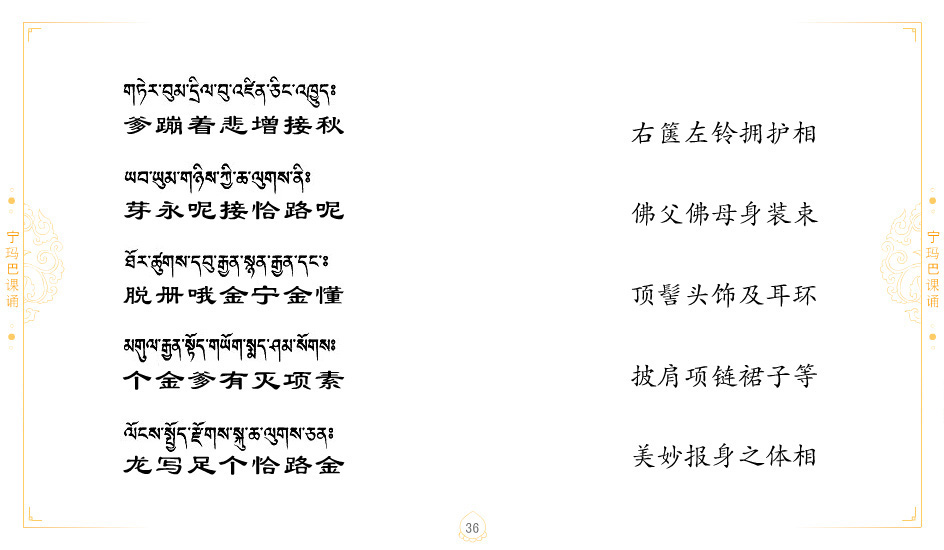 གཏེར་བུམ་དྲིལ་བུ་འཛིན་ཅིང་འཁྱུད༔
爹蹦着悲增接秋
ཡབ་ཡུམ་གཉིས་ཀྱི་ཆ་ལུགས་ནི༔
芽永呢接恰路呢
ཐོར་ཚུགས་དབུ་རྒྱན་སྙན་རྒྱན་དང་༔
脱册哦金宁金懂
མགུལ་རྒྱན་སྟོད་གཡོག་སྨད་ཤམ་སོགས༔
个金爹有灭项素
ལོངས་སྤྱོད་རྫོགས་སྐུ་ཆ་ལུགས་ཅན༔
龙写足个恰路金
右箧左铃拥护相
佛父佛母身装束
顶髻头饰及耳环
披肩项链裙子等
美妙报身之体相
宁玛巴课诵
宁玛巴课诵
36